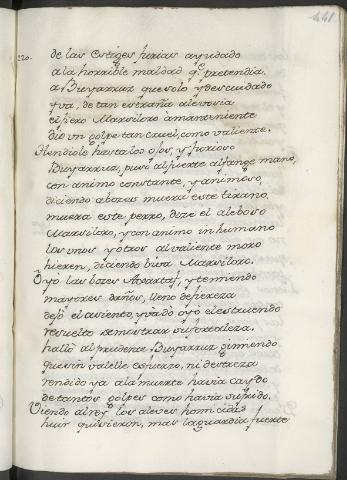 441
220.
de las estiges furias ayudado
a la horrible maldad q̃ pretendia.
a Buyarruz que solo y descuidado
yva, de tan estraña alevosia
el fiero Marsiloro amanteniente
dio un golpe tan cruel, como valiente.
Hendiole hasta los ojos, y furioso
Buyarruz, puso al fuerte alfange mano,
con animo constante, y animoso,
diciendo a bozes muera este tirano,
muera este perro, dize el aleboso
Marsiloro, y con animo inhumano
los unos y otros al valiente moro
hieren, diciendo biva Marsiloro.
Oyo las bozes Abaxtaf, y temiendo
mayores daños, lleno de fiereza
dejo el asiento, y va do oyo el estruendo
resuelto de mostrar su fortaleza.
hallò al prudente Buyarruz gimiendo
que sin valelle esfuerzo, ni destreza
rendido ya a la muerte havia caydo
de tantos golpes como havia sufrido.
Viendo al rey los aleves homicidas
huir quisieron, mas la guardia fuerte